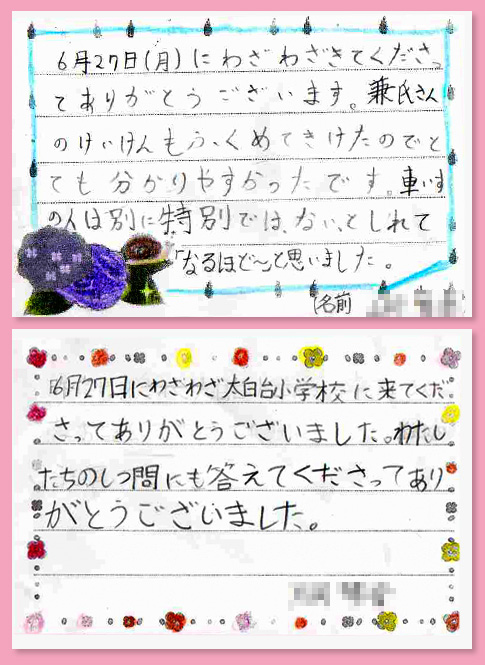 6月27日(月)にわざわざきてくださっ
てありがとうございます。兼氏さん
のけいけんもふくめてきけたのでと
ても分かりやすかったです。車いす
の人は別に特別では、ない、としれて
「なるほど〜と思いました。
(名前
6月27日にわざわざ太白台小学校に来てくだ
さってありがとうございました。わたし
たちのしつ問にも答えてくださってあり
がとうございました。